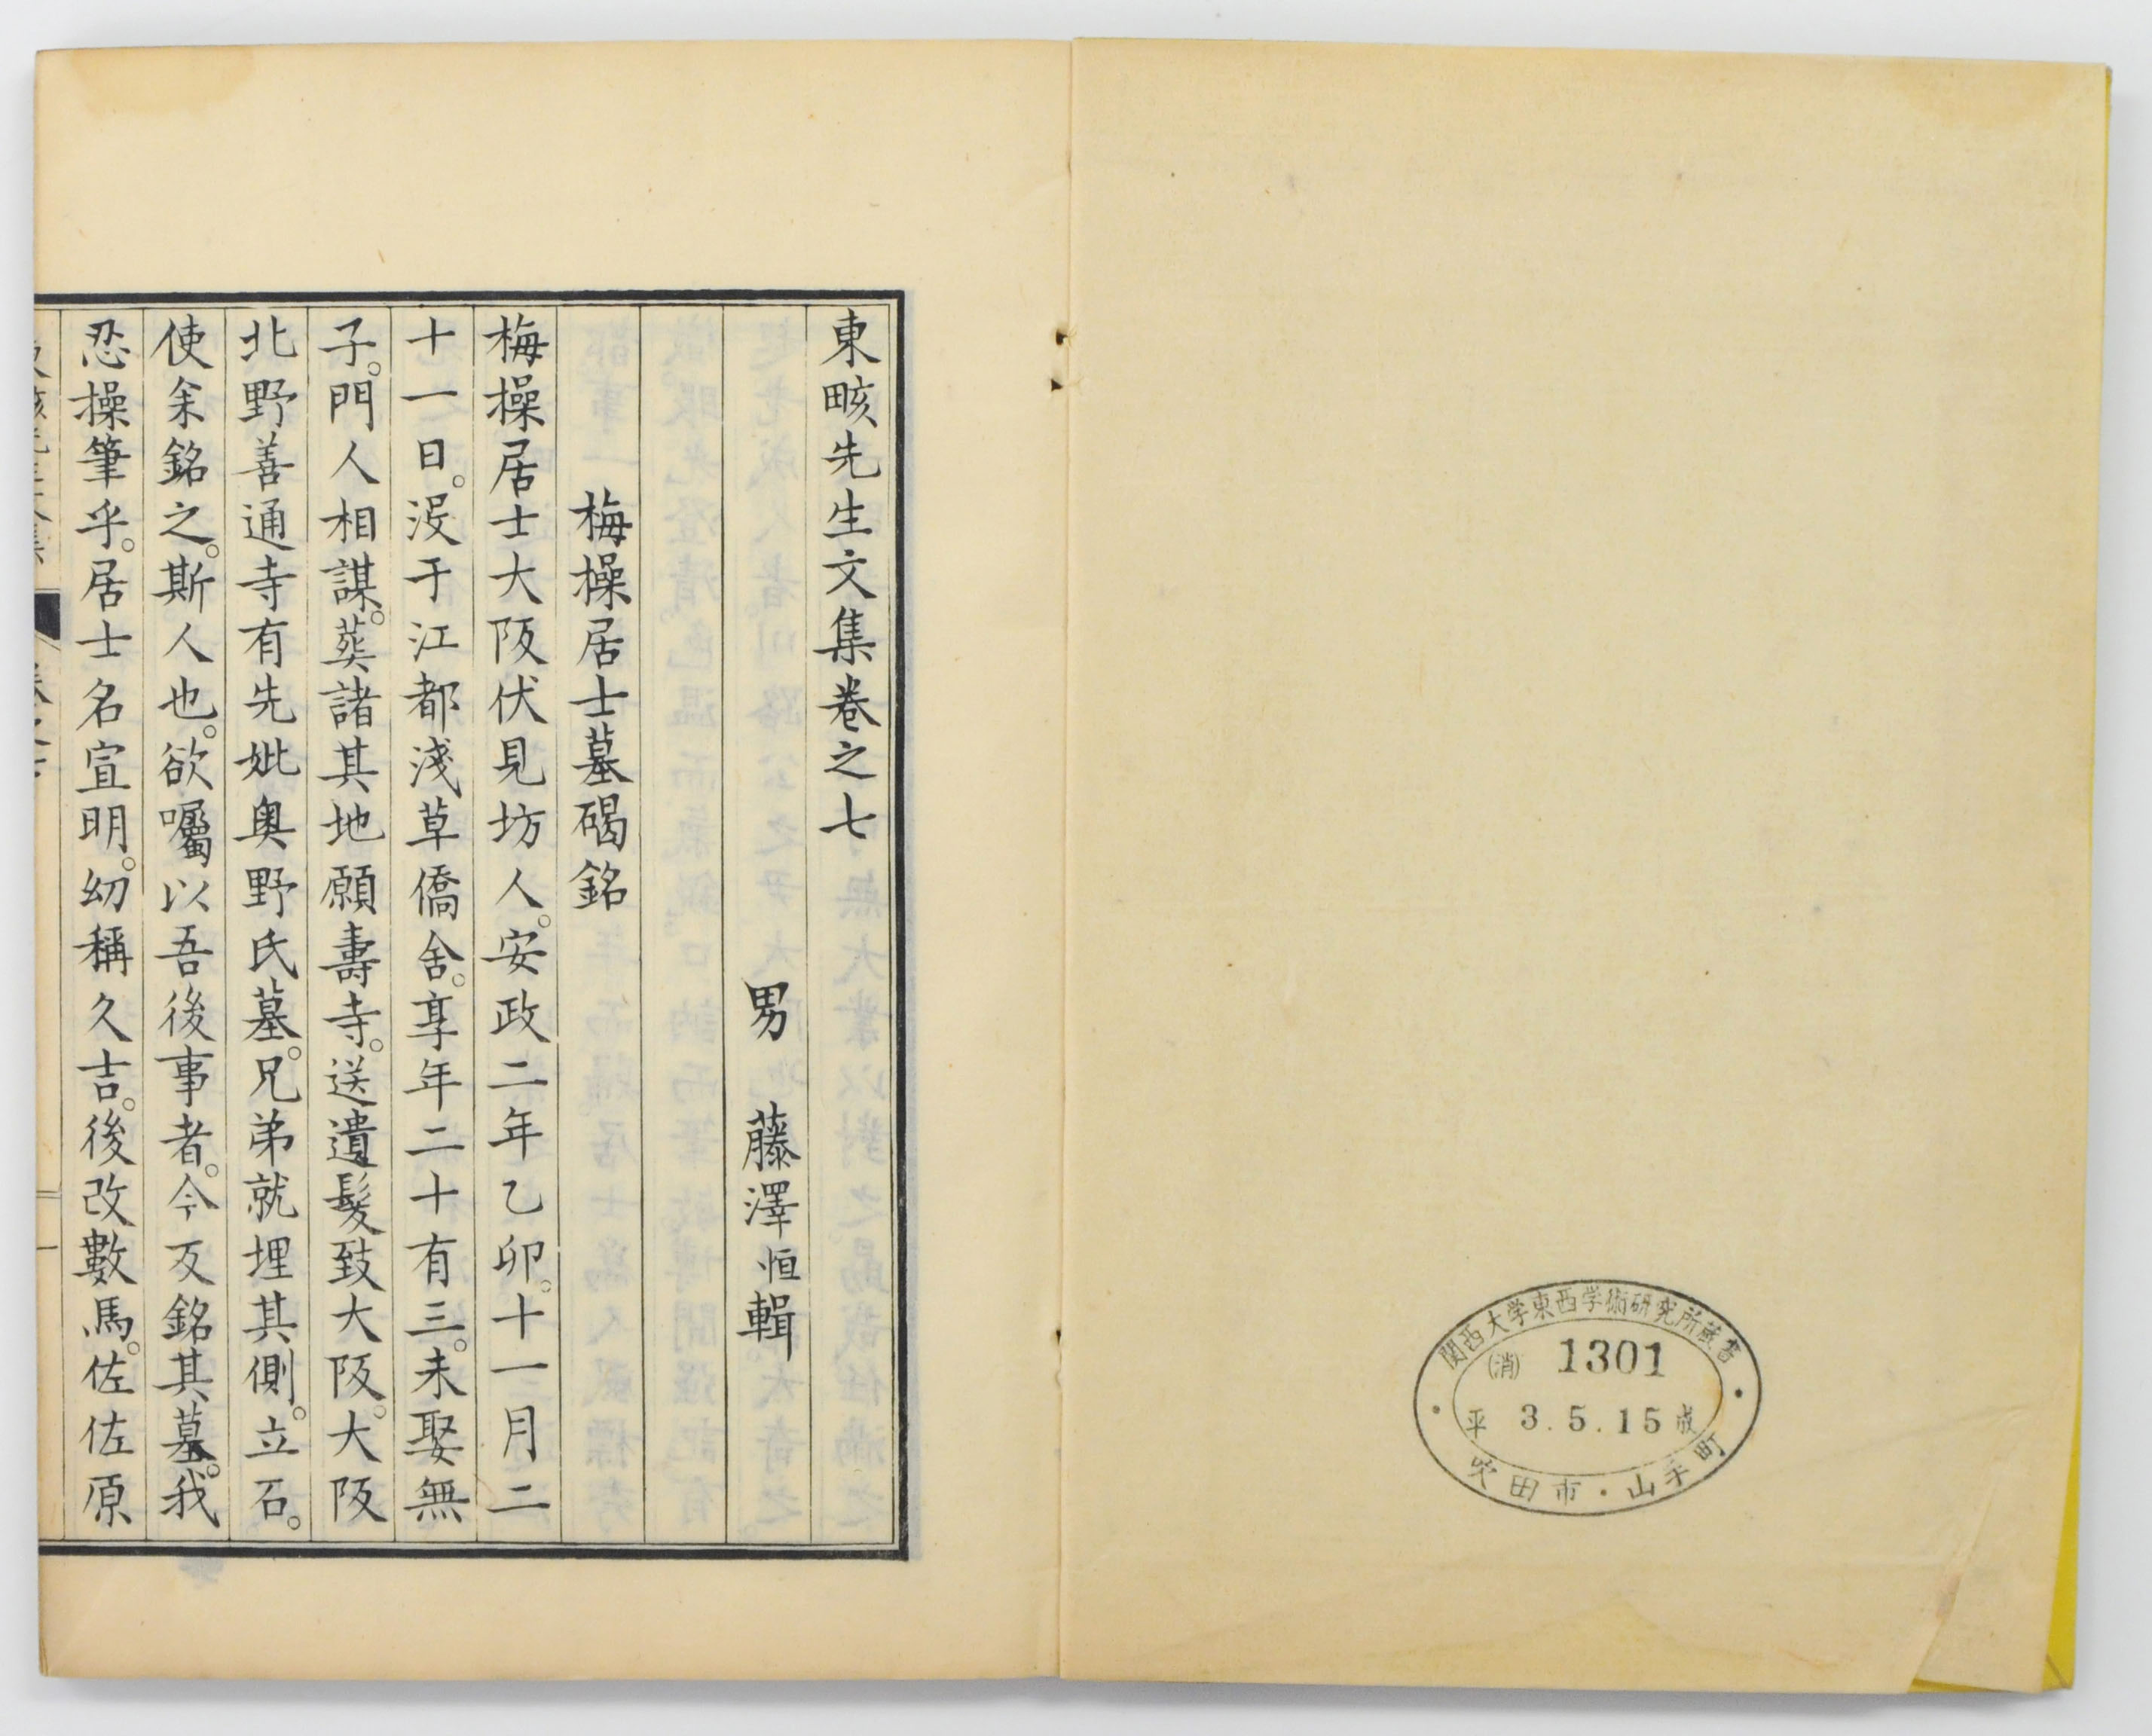 関西大学東西学術研究所蔵書
(消) 1301
平 3.5.15 成
吹田市・山手町
東畡先生文集卷之七
男 藤澤恒輯
梅操居士墓碣銘
梅操居士大阪伏見坊人。安政二年乙卯。十一月二
十一日。沒于江都淺草僑舍。享年二十有三。未娶無
子。門人相謀。葬諸其地願壽寺。送遺髮致大阪。大阪
北野善通寺有先妣奧野氏墓。兄弟就埋其側。立石。
使余銘之。斯人也。欲囑以吾後事者。今反銘其墓。我
忍操筆乎。居士名宜明。幼稱久吉。後改數馬。佐佐原